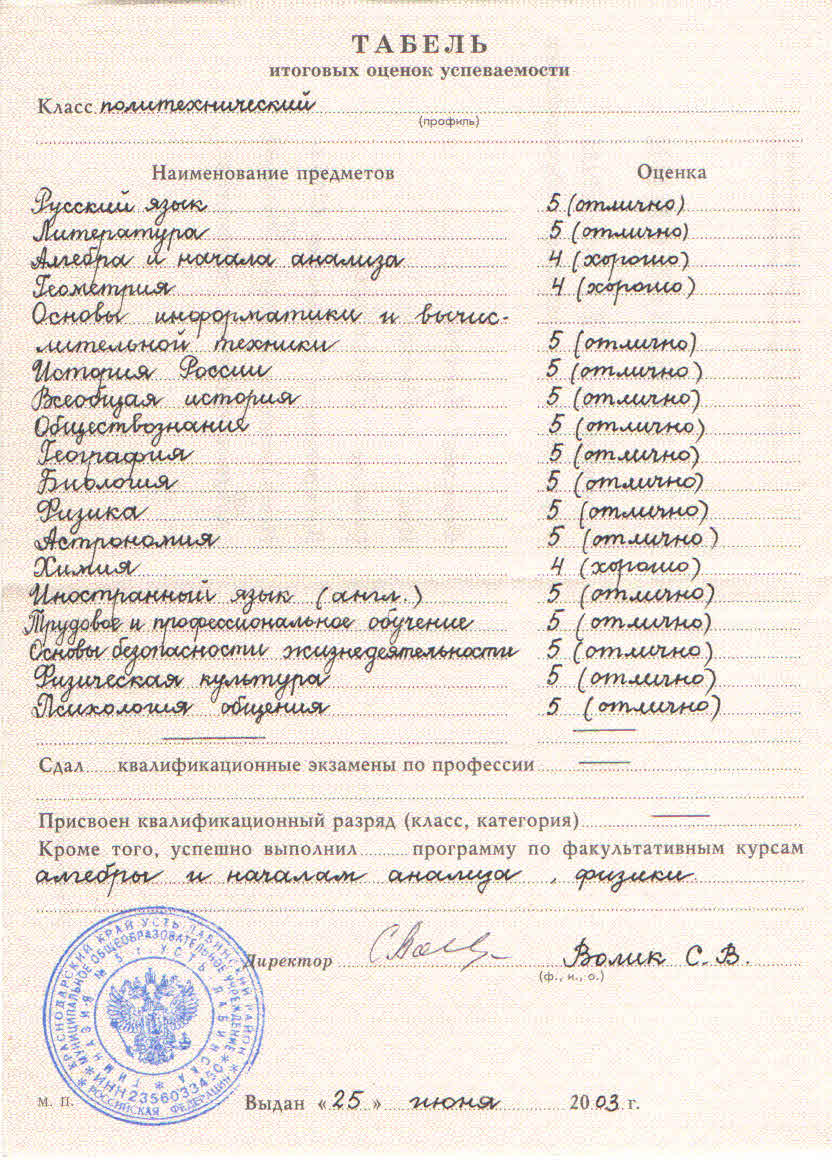 ТАБЕЛЬ
итоговых оценок успеваемости
Класс политехнический
(профиль)
Наименование предметов Оценка
Русский язык 5 (отлично)
Литература 5 (отлично)
Алгебра и начала анализа 4 (хорошо)
Геометрия 4 (хорошо)
Основы информатики и вычис-
лительной техники 5 (отлично)
История России 5 (отлично)
Всеобщая история 5 (отлично)
Обществознание 5 (отлично)
География 5 (отлично)
Биология 5 (отлично)
Физика 5 (отлично)
Астрономия 5 (отлично)
Химия 4 (хорошо)
Иностранный язык (англ.) 5 (отлично)
Трудовое и профессиональное обучение 5 (отлично)
Основы безопасности жизнедеятельности 5 (отлично)
Физическая культура 5 (отлично)
Психология общения 5 (отлично)
Сдал квалификационные экзамены по профессии —
Присвоен квалификационный разряд (класс, категория) —
Кроме того, успешно выполнил программу по факультативным курсам
алгебры и началам анализа, физики.
Директор Волик С. В.
(ф., и., о.)
КРАСНОДАРСКИЙ КРАЙ УСТЬ-ЛАБИНСКИЙ РАЙОН
РОССИЙСКАЯ ФЕДЕРАЦИЯ
МУНИЦИПАЛЬНОЕ ОБЩЕОБРАЗОВАТЕЛЬНОЕ УЧРЕЖДЕНИЕ
ИНН 2356033450
ГИМНАЗИЯ № 5 г. УСТЬ-ЛАБИНСКА
М. П. Выдан «25» июня 2003 г.